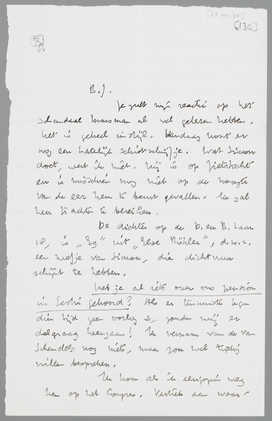 [130]
B.J.
Je zult mijn reactie op het
schandaal Marsman al wel gelezen hebben.
Het is geheel in stijl. Vandaag komt er
nog een hatelijk
doet, weet ik niet. Hij is op fietstocht
en is misschien nog niet op de hoogte
van de eer hem te beurt gevallen. Ik zal
hem trachten te bereiken.
De dichter op de D. en B. laan
10, is „Eg" uit „Rose Möhler", d.w.z.
een neefje van Simon, die dichter
schijnt te hebben.
Heb je al iets over ons pension
in gehoord? Als er tenminste tegen
dien tijd geen oorlog is, zouden wij er
dolgraag heengaan! Ik vernam van de van
Schendels nog niets, maar zou wel tijdig
willen bespreken.
Ik kom als ik eenigszins weg
kan op het Congres. Vertrek dan waar-